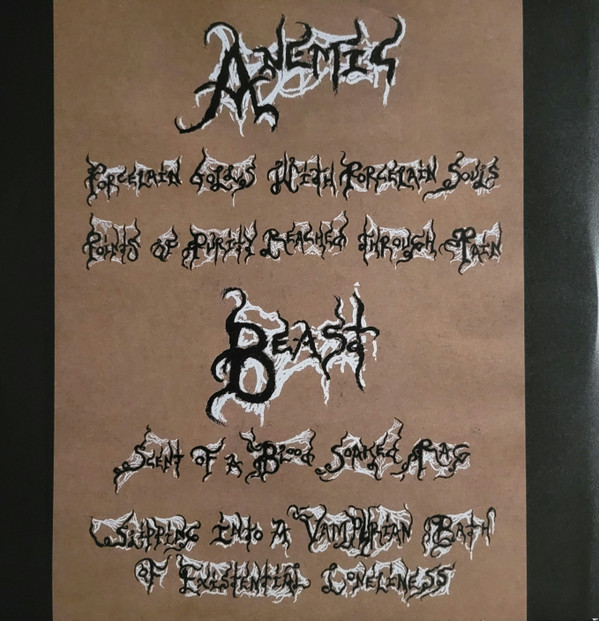 Anemic
Porcelain Dolls With Porcelain Souls
Points of Purity Reached Through Pain
Beast
Scent of a Blood Soaked Rag
Slipping Into A Vampyrian Bath
of Existential Loneliness